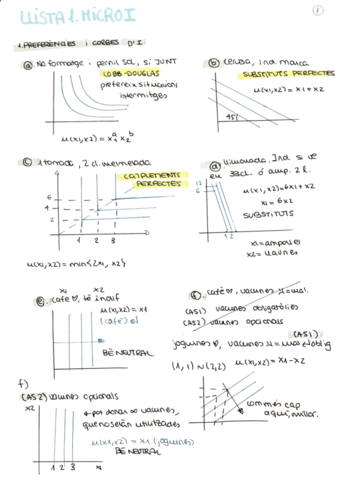 LLISTA 1. MICRO I
1
1. PREFERÈNCIES i CORBES D'I
a No formatge i pernil SOL, sí JUNT
COBB-DOUGLAS
prefereix situacions
intermitges
u(x1,x2) = x1^a x2^b
b Cervesa, ind. marca
SUBSTITUTS PERFECTES
u(x1,x2) = x1+x2
45
c 1 torrada, 2 cl. mermelada
COMPLEMENTS
PERFECTES
6
4
2
1 2 3
u(x1,x2) = min{2x1, x2}
d Llimonada. Ind. si ve
en 33cl. o amp. 2 l.
12
6
1 2
u(x1,x2)=6x1+x2
x1 = 6x2
SUBSTITUTS
x1 = ampolles
x2 = llaunes
x1 x2
e. café ♡, té indif
u(x1,x2) = x1
(café)
BÉ NEUTRAL
f. café ♡, vacunes = mal.
(AS1) vacunes obligatòries
(AS2) vacunes opcionals
(AS1)
joguines ♡, vacunes = mal oblig
(1,1) ~ (2,2) u(x1,x2) = x1-x2
com més cap
aquí, millor.
f)
(AS2) vacunes opcionals
x2
1 2 3 x1
← por donar ∞ vacunes,
que no seràn utilitzades
u(x1,x2) = x1 (joguines)
BÉ NEUTRAL